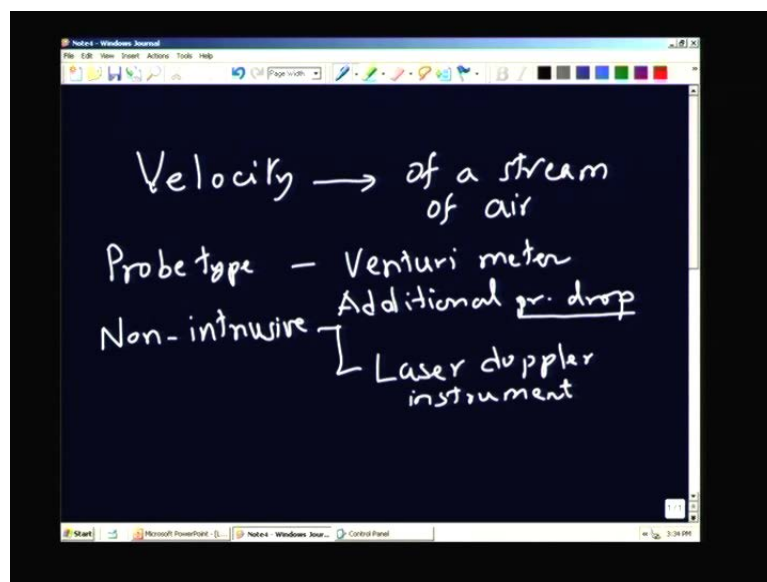 Note4 - Windows Journal
File Edit View Insert Actions Tools Help
Page Width
B I
Velocity → of a stream
of air
Probe type - Venturi meter
Additional pr. drop
Non-intrusive - Laser doppler
instrument
1/1
Start Microsoft PowerPoint - [L... Note4 - Windows Jour... Control Panel 3:34 PM